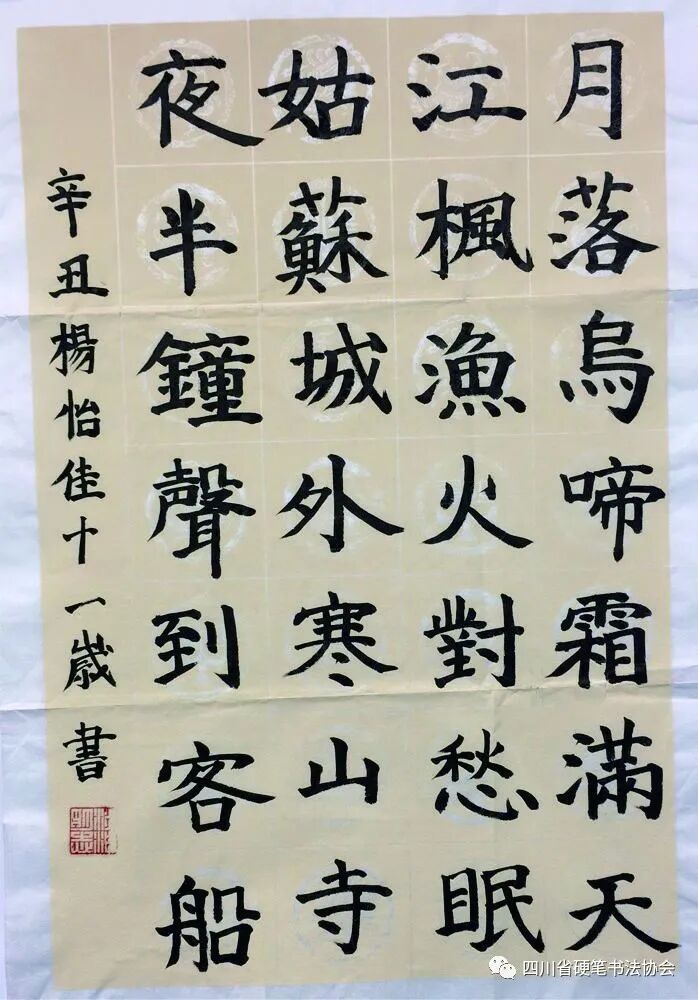 月落烏啼霜滿天
江楓漁火對愁眠
姑蘇城外寒山寺
夜半鐘聲到客船
辛丑楊怡佳十一歲書
四川省硬笔书法协会